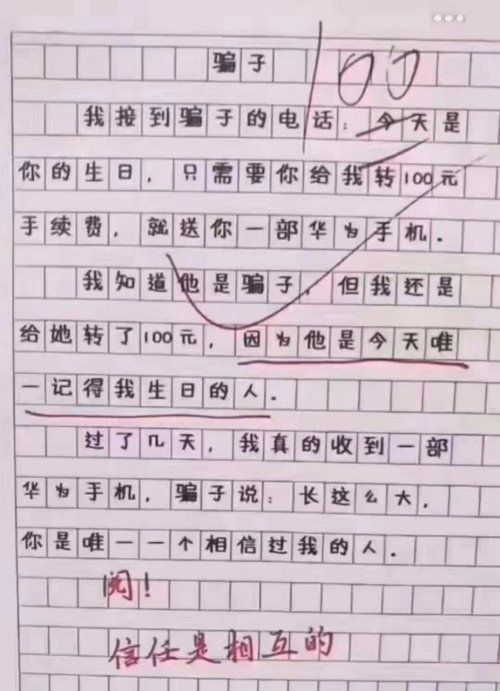 骗子
100
我接到骗子的电话：今天是
你的生日，只需要你给我转100元
手续费，就送你一部华为手机．
我知道他是骗子，但我还是
给她转了100元，因为他是今天唯
一记得我生日的人．
过了几天，我真的收到一部
华为手机，骗子说：长这么大，
你是唯一一个相信过我的人．
阅！
信任是相互的